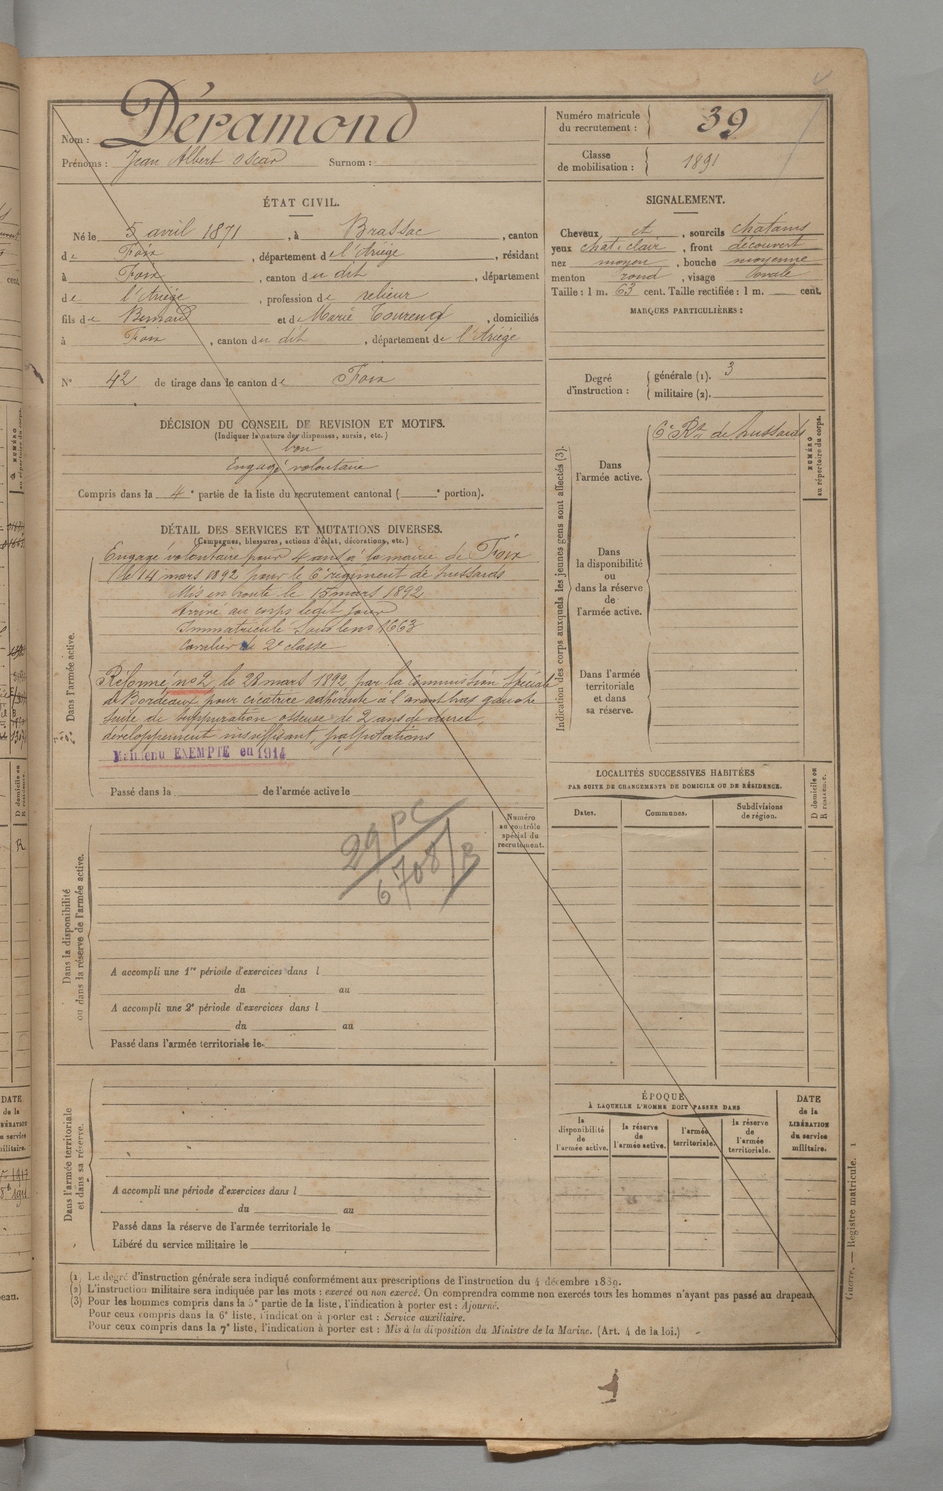 Nom : Déramond
Prénoms : Jean Albert Oscar Surnom :
Numéro matricule du recrutement : 39
Classe de mobilisation : 1891
ÉTAT CIVIL.
Né le 5 avril 1871, à Brassac, canton
de Foix, département de l'Ariège, résidant
à Foix, canton du dit, département
de l'Ariège, profession de relieur
fils de Bernard et de Marie Toureng, domiciliés
à Foix, canton du dit, département de l'Ariège
N° 42 de tirage dans le canton de Foix
SIGNALEMENT.
Cheveux et, sourcils chatains
yeux chat. clair, front découvert
nez moyen, bouche moyenne
menton rond, visage ovale
Taille : 1 m. 63 cent. Taille rectifiée : 1 m. cent.
MARQUES PARTICULIÈRES :
Degré d'instruction : générale (1). 3
militaire (2).
DÉCISION DU CONSEIL DE REVISION ET MOTIFS.
(Indiquer la nature des dispenses, sursis, etc.)
bon
Engagé volontaire
Compris dans la 4e partie de la liste du recrutement cantonal ( e portion).
DÉTAIL DES SERVICES ET MUTATIONS DIVERSES.
(Campagnes, blessures, actions d'éclat, décorations, etc.)
Dans l'armée active.
Engagé volontaire pour 4 ans à la mairie de Foix
le 14 mars 1892 pour le 6e régiment de hussards
Mis en route le 15 mars 1892
Arrivé au corps le dit jour
Immatriculé sous le no 1663
Cavalier de 2e classe
Réformé no 2 le 28 mars 1892 par la commission spéciale
de Bordeaux pour cicatrice adhérente à l'avant bras gauche
suite de suppuration osseuse de 2 ans de durée,
développement insuffisant, palpitations
Maintenu EXEMPTÉ en 1914
Passé dans la de l'armée active le
Indication des corps auxquels les jeunes gens sont affectés (3).
Dans l'armée active.
6e Rt de hussards
NUMÉRO au répertoire du corps.
Dans la disponibilité ou dans la réserve de l'armée active.
Dans l'armée territoriale et dans sa réserve.
LOCALITÉS SUCCESSIVES HABITÉES
PAR SUITE DE CHANGEMENTS DE DOMICILE OU DE RÉSIDENCE.
Dates. Communes. Subdivisions de région.
D domicile ou R résidence.
Dans la disponibilité ou dans la réserve de l'armée active.
Numéro au contrôle spécial du recrutement.
29 PC
6708/B
A accompli une 1re période d'exercices dans l
du au
A accompli une 2e période d'exercices dans l
du au
Passé dans l'armée territoriale le
Dans l'armée territoriale et dans sa réserve.
A accompli une période d'exercices dans l
du au
Passé dans la réserve de l'armée territoriale le
Libéré du service militaire le
ÉPOQUE
À LAQUELLE L'HOMME DOIT PASSER DANS
la disponibilité de l'armée active.
la réserve de l'armée active.
l'armée territoriale.
la réserve de l'armée territoriale.
DATE de la LIBÉRATION du service militaire.
(1) Le degré d'instruction générale sera indiqué conformément aux prescriptions de l'instruction du 4 décembre 1889.
(2) L'instruction militaire sera indiquée par les mots : exercé ou non exercé. On comprendra comme non exercés tous les hommes n'ayant pas passé au drapeau.
(3) Pour les hommes compris dans la 5e partie de la liste, l'indication à porter est : Ajourné.
Pour ceux compris dans la 6e liste, l'indication à porter est : Service auxiliaire.
Pour ceux compris dans la 7e liste, l'indication à porter est : Mis à la disposition du Ministre de la Marine. (Art. 4 de la loi.)
Guerre. — Registre matricule. 1